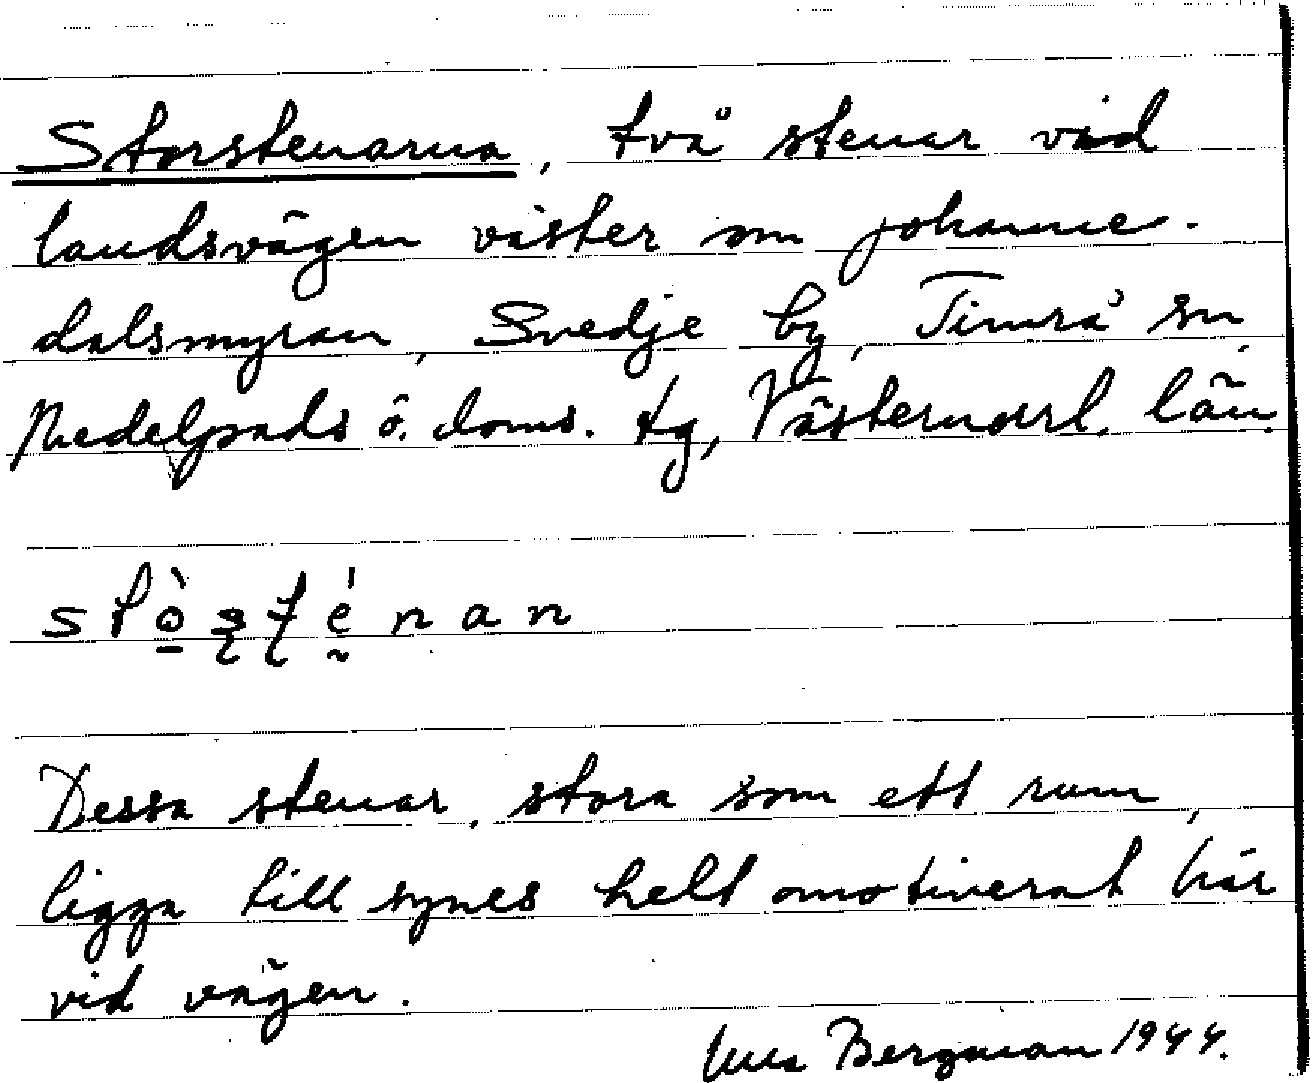 Storstenarna, två stenar vid
landsvägen väster om Johanne-
dalsmyran, Svedje by, Timrå sn,
Medelpads ö. doms. tg, Västernorrl. län.
stò̱ʂʈḛ́nan
Dessa stenar, stora som ett rum,
ligga till synes helt omotiverat här
vid vägen.
Bergman 1944.